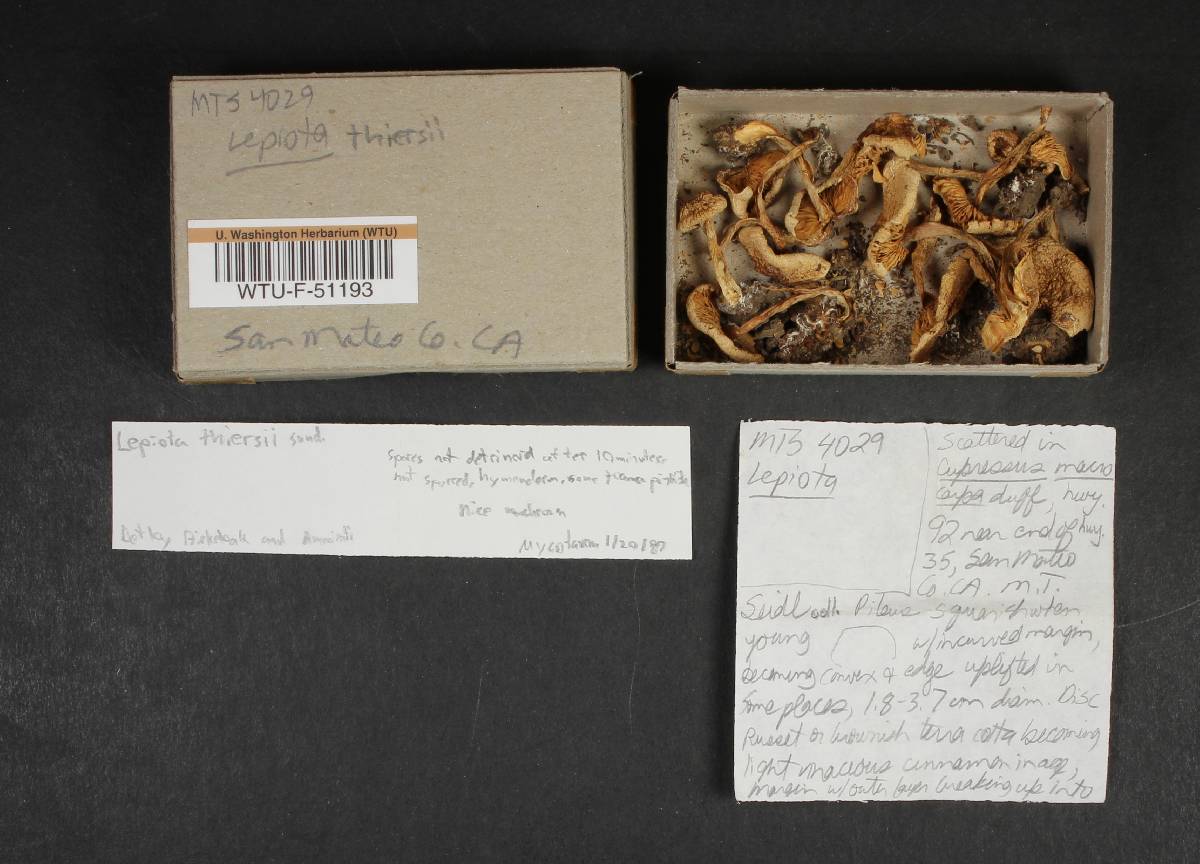 MTS 4029
Lepiota thiersii
U. Washington Herbarium (WTU)
WTU-F-51193
San Mateo Co. CA
Lepiota thiersii sund.
Spores not dextrinoid after 10 minutes
not spurred, hymenoderm, some
nice
Det by and
1/20/87
MTS 4029
Lepiota
Scattered in
Cupressus macro
carpa duff, hwy.
92 near end of hwy.
35, San Mateo
Co. CA. M.T.
Seidl coll. Pileus squarish when
young w/ incurved margin,
becoming convex & edge uplifted in
some places, 1.8-3.7 cm diam. Disc
russet or brownish terra cotta becoming
light vinaceous cinnamon in age,
margin w/ outer layer breaking up into